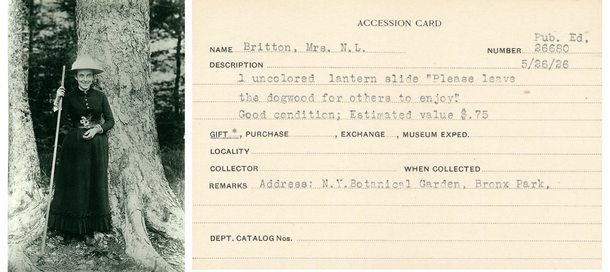 ACCESSION CARD
Pub. Ed.
NAME Britton, Mrs. N.L. NUMBER 26680
DESCRIPTION 5/26/26
1 uncolored lantern slide "Please leave
the dogwood for others to enjoy"
Good condition; Estimated value $.75
GIFT *, PURCHASE , EXCHANGE , MUSEUM EXPED.
LOCALITY
COLLECTOR WHEN COLLECTED
REMARKS Address: N.Y.Botanical Garden, Bronx Park,
DEPT. CATALOG Nos.